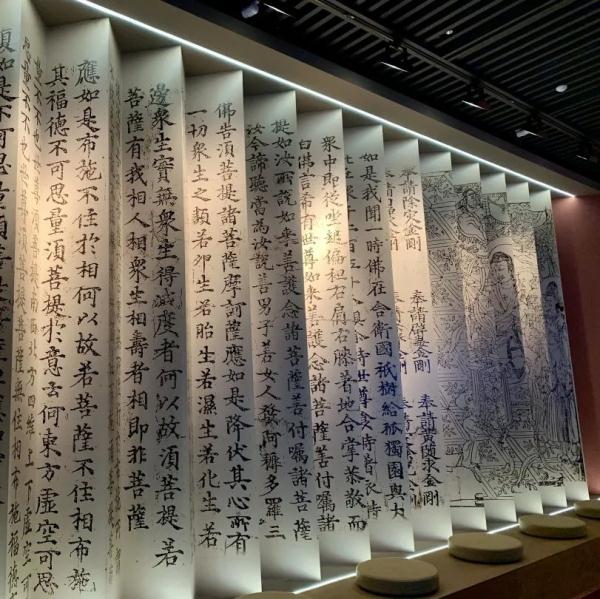 奉請除灾金剛
奉請辟毒金剛
奉請黃隨求金剛
如是我聞一時佛在舍衛國祇樹給孤獨園與大
衆中即從坐起偏袒右肩右膝著地合掌恭敬而
白佛言希有世尊如來善護念諸菩薩善付囑諸
提如汝所說如來善護念諸菩薩善付囑諸菩薩
汝今諦聽當為汝說善男子善女人發阿耨多羅三
佛告須菩提諸菩薩摩訶薩應如是降伏其心所有
一切衆生之類若卵生若胎生若濕生若化生若
邊衆生實無衆生得滅度者何以故須菩提若
菩薩有我相人相衆生相壽者相即非菩薩
應如是布施不住於相何以故若菩薩不住相布施
其福德不可思量須菩提於意云何東方虛空可思
須菩提南西北方四維上下虛空可
須菩提菩薩無住相布施福德
復如是不可思量須菩